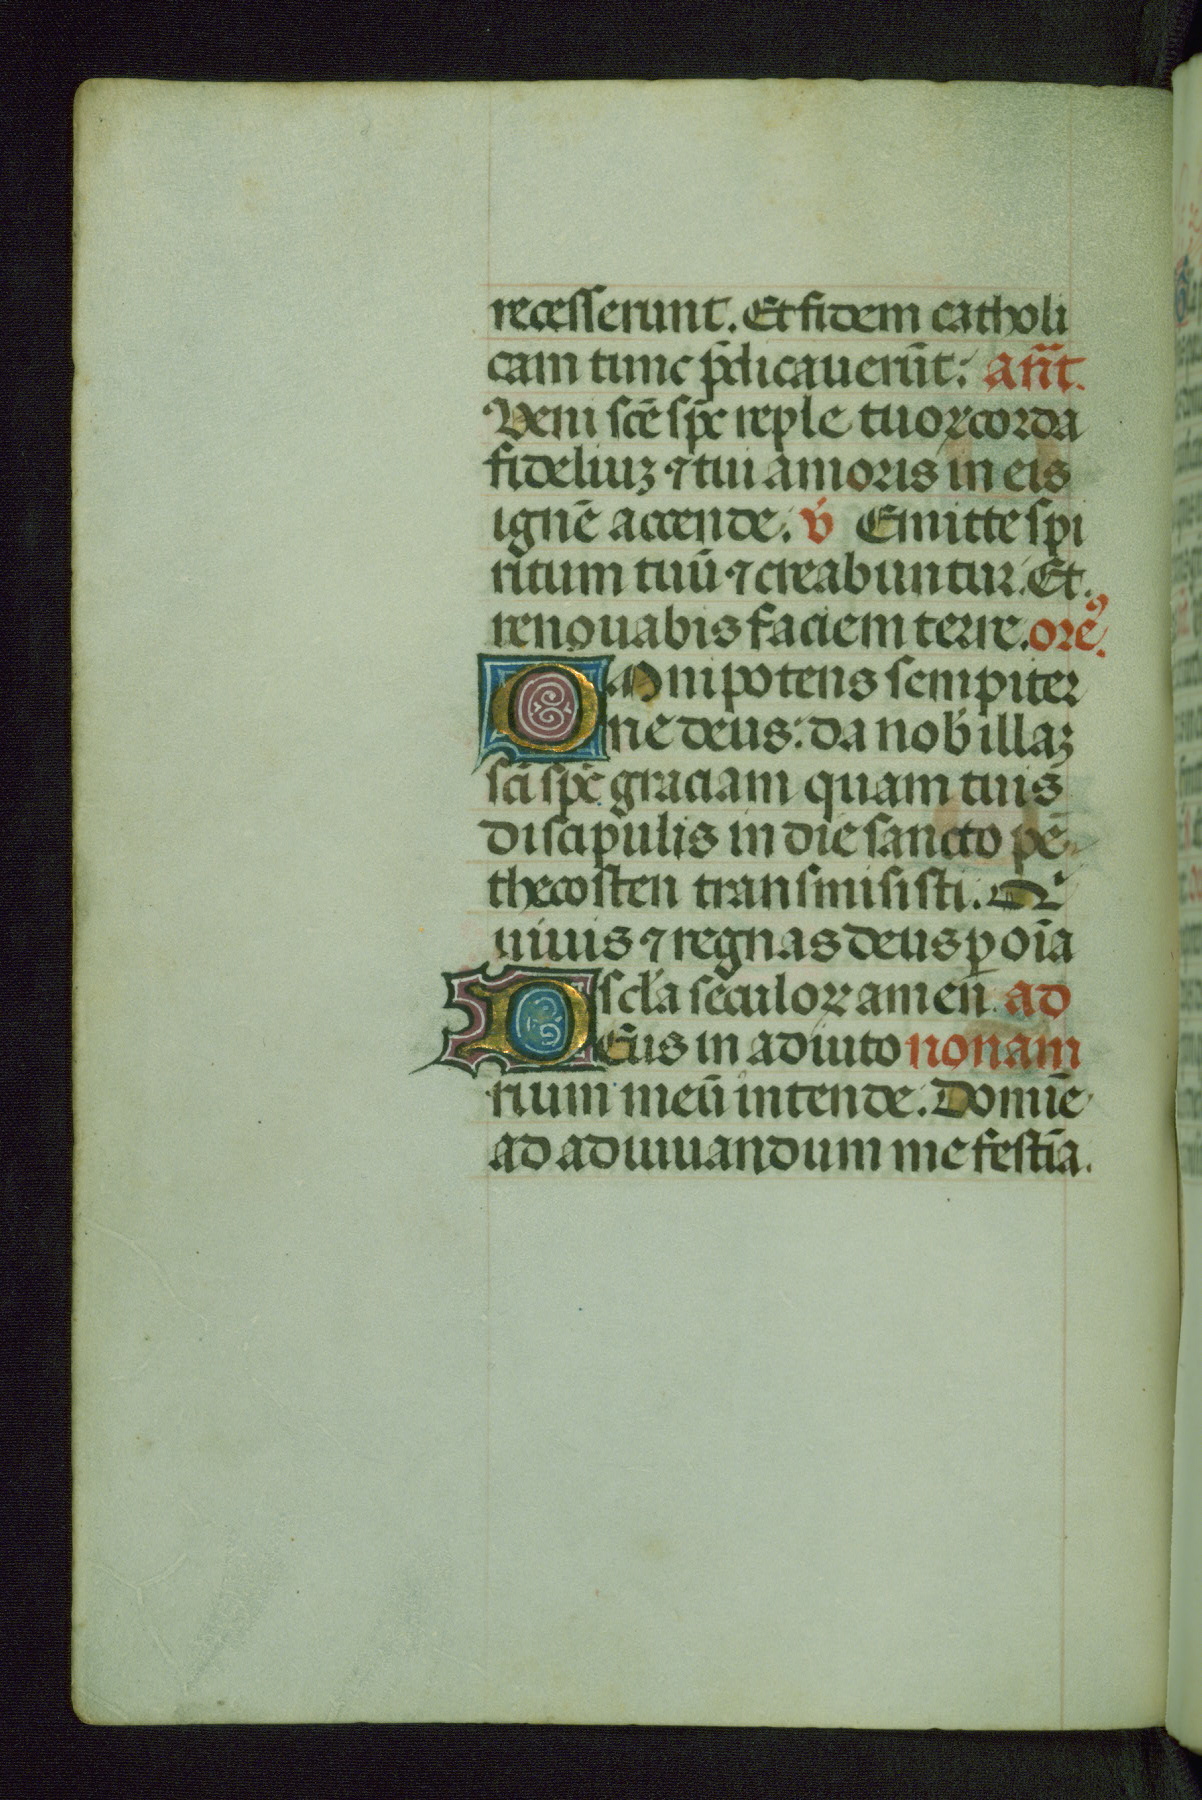 recesserunt. Et fidem catholi
cam tunc p̄dicauerūt: an̄t.
Veni scē spc̄ reple tuoꝝ corda
fideliuꝫ ⁊ tui amoris in eis
ignē accende. v̄ Emitte spi
ritum tuū ⁊ creabuntur. Et
renouabis faciem terre. orē.
Omnipotens sempiter
ne deus: da nob̄ illaꝫ
sc̄i spc̄ graciam quam tuis
discipulis in die sancto pē
thecosten transmisisti. Qͥ
uiuis ⁊ regnas deus ꝑ oīa
scl̄a sēculoꝝ amen. ad
Deus in adiuto nonam
rium meū intende. Domīe
ad adiuuandum me festīa.